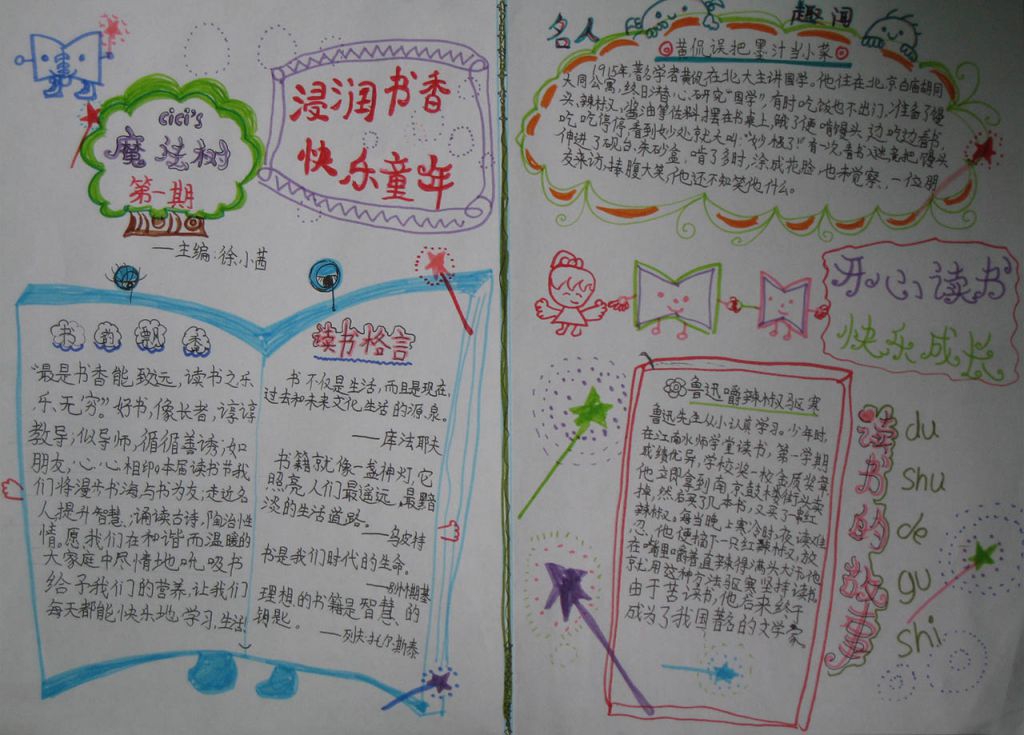 cici's
魔法树
第一期
——主编:徐小茜
浸润书香
快乐童年
书韵飘香
"最是书香能致远,读书之乐
乐无穷"。好书,像长者,谆谆
教导;似导师,循循善诱;如
朋友,心心相印。本届读书节我
们将漫步书海与书为友;走近名
人提升智慧;诵读古诗,陶冶性
情。愿我们在和谐而温暖的
大家庭中尽情地吮吸书
给予我们的营养,让我们
每天都能快乐地学习,生活
读书格言
书不仅是生活,而且是现在、
过去和未来文化生活的源泉。
——库法耶夫
书籍就像一盏神灯,它
照亮人们最遥远、最黯
淡的生活道路。
——乌皮特
书是我们时代的生命。
——别林斯基
理想的书籍是智慧的
钥匙。
——列夫·托尔斯泰
名人
趣闻
黄侃误把墨汁当小菜
1915年,著名学者黄侃在北大主讲国学。他住在北京白庙胡同
大同公寓,终日潜心研究"国学",有时吃饭也不出门,准备了馒
头、辣椒、酱油等佐料,摆在书桌上,饿了便啃馒头,边吃边看书,
吃吃停停,看到妙处就大叫:"妙极了!"有一次,看书入迷,竟把馒头
伸进了砚台、朱砂盒,啃了多时,涂成花脸,也未觉察,一位朋
友来访,捧腹大笑,他还不知笑他什么。
开心读书
快乐成长
鲁迅嚼辣椒驱寒
鲁迅先生从小认真学习。少年时,
在江南水师学堂读书,第一学期
成绩优异,学校奖一枚金质奖章
他立即拿到南京鼓楼街头卖
掉,然后买了几本书,又买了一串红
辣椒。每当晚上寒冷时,夜读难
忍,他便摘下一只红辣椒,放
在嘴里嚼着,直辣得满头大汗,他
就用这种方法驱寒坚持读书。
由于苦读书,他后来终于
成为了我国著名的文学家
读书的故事
du
shu
de
gu
shi